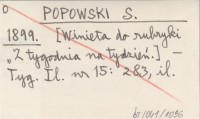 POPOWSKI S.
1899. [Winieta do rubryki
"Z tygodnia na tydzień.] -
Tyg. Il. nr 15: 283, il.